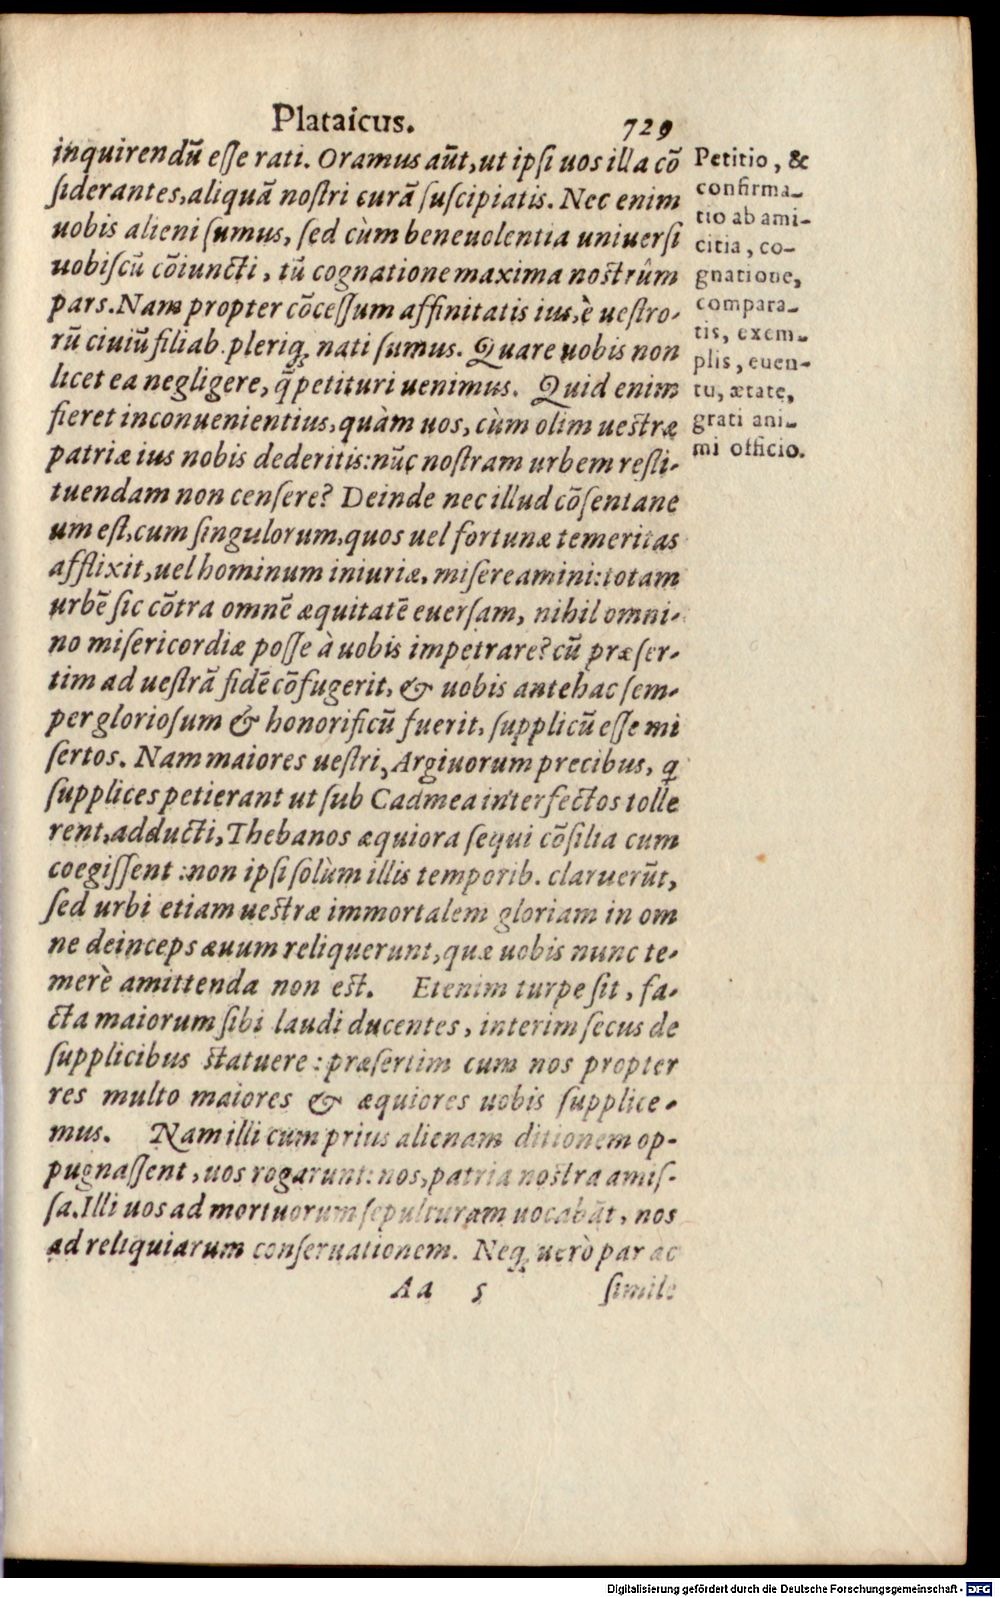 Plataicus. 729
inquirendū esse rati. Oramus aūt, ut ipsi uos illa cō
siderantes, aliquā nostri curā suscipiatis. Nec enim
uobis alieni sumus, sed cùm beneuolentia uniuersi
uobiscū cōiuncti, tū cognatione maxima nostrûm
pars. Nam propter cōcessum affinitatis ius, è uestro-
rū ciuiū filiab. pleriq; nati sumus. Quare uobis non
licet ea negligere, q̄ petituri uenimus. Quid enim
fieret inconuenientius, quàm uos, cùm olim uestræ
patriæ ius nobis dederitis: nūc nostram urbem resti-
tuendam non censere? Deinde nec illud cōsentane
um est, cum singulorum, quos uel fortunæ temeritas
afflixit, uel hominum iniuriæ, misereamini: totam
urbē sic cōtra omnē æquitatē euersam, nihil omni-
no misericordiæ posse à uobis impetrare? cū præser-
tim ad uestrā fidē cōfugerit, & uobis antehac sem-
per gloriosum & honorificū fuerit, supplicū esse mi
sertos. Nam maiores uestri, Argiuorum precibus, q
supplices petierant ut sub Cadmea interfectos tolle
rent, adducti, Thebanos æquiora sequi cōsilia cum
coegissent: non ipsi solùm illis temporib. claruerūt,
sed urbi etiam uestræ immortalem gloriam in om
ne deinceps æuum reliquerunt, quæ uobis nunc te-
merè amittenda non est. Etenim turpe sit, fa-
cta maiorum sibi laudi ducentes, interim secus de
supplicibus statuere: præsertim cum nos propter
res multo maiores & æquiores uobis supplice-
mus. Nam illi cum prius alienam ditionem op-
pugnassent, uos rogarunt: nos, patria nostra amis-
sa. Illi uos ad mortuorum sepulturam uocabāt, nos
ad reliquiarum conseruationem. Neq; uerò par ac
Aa 5 simile
Petitio, &
confirma-
tio ab ami-
citia, co-
gnatione,
compara-
tis, exem-
plis, euen-
tu, ætate,
grati ani-
mi officio.
Digitalisierung gefördert durch die Deutsche Forschungsgemeinschaft - DFG